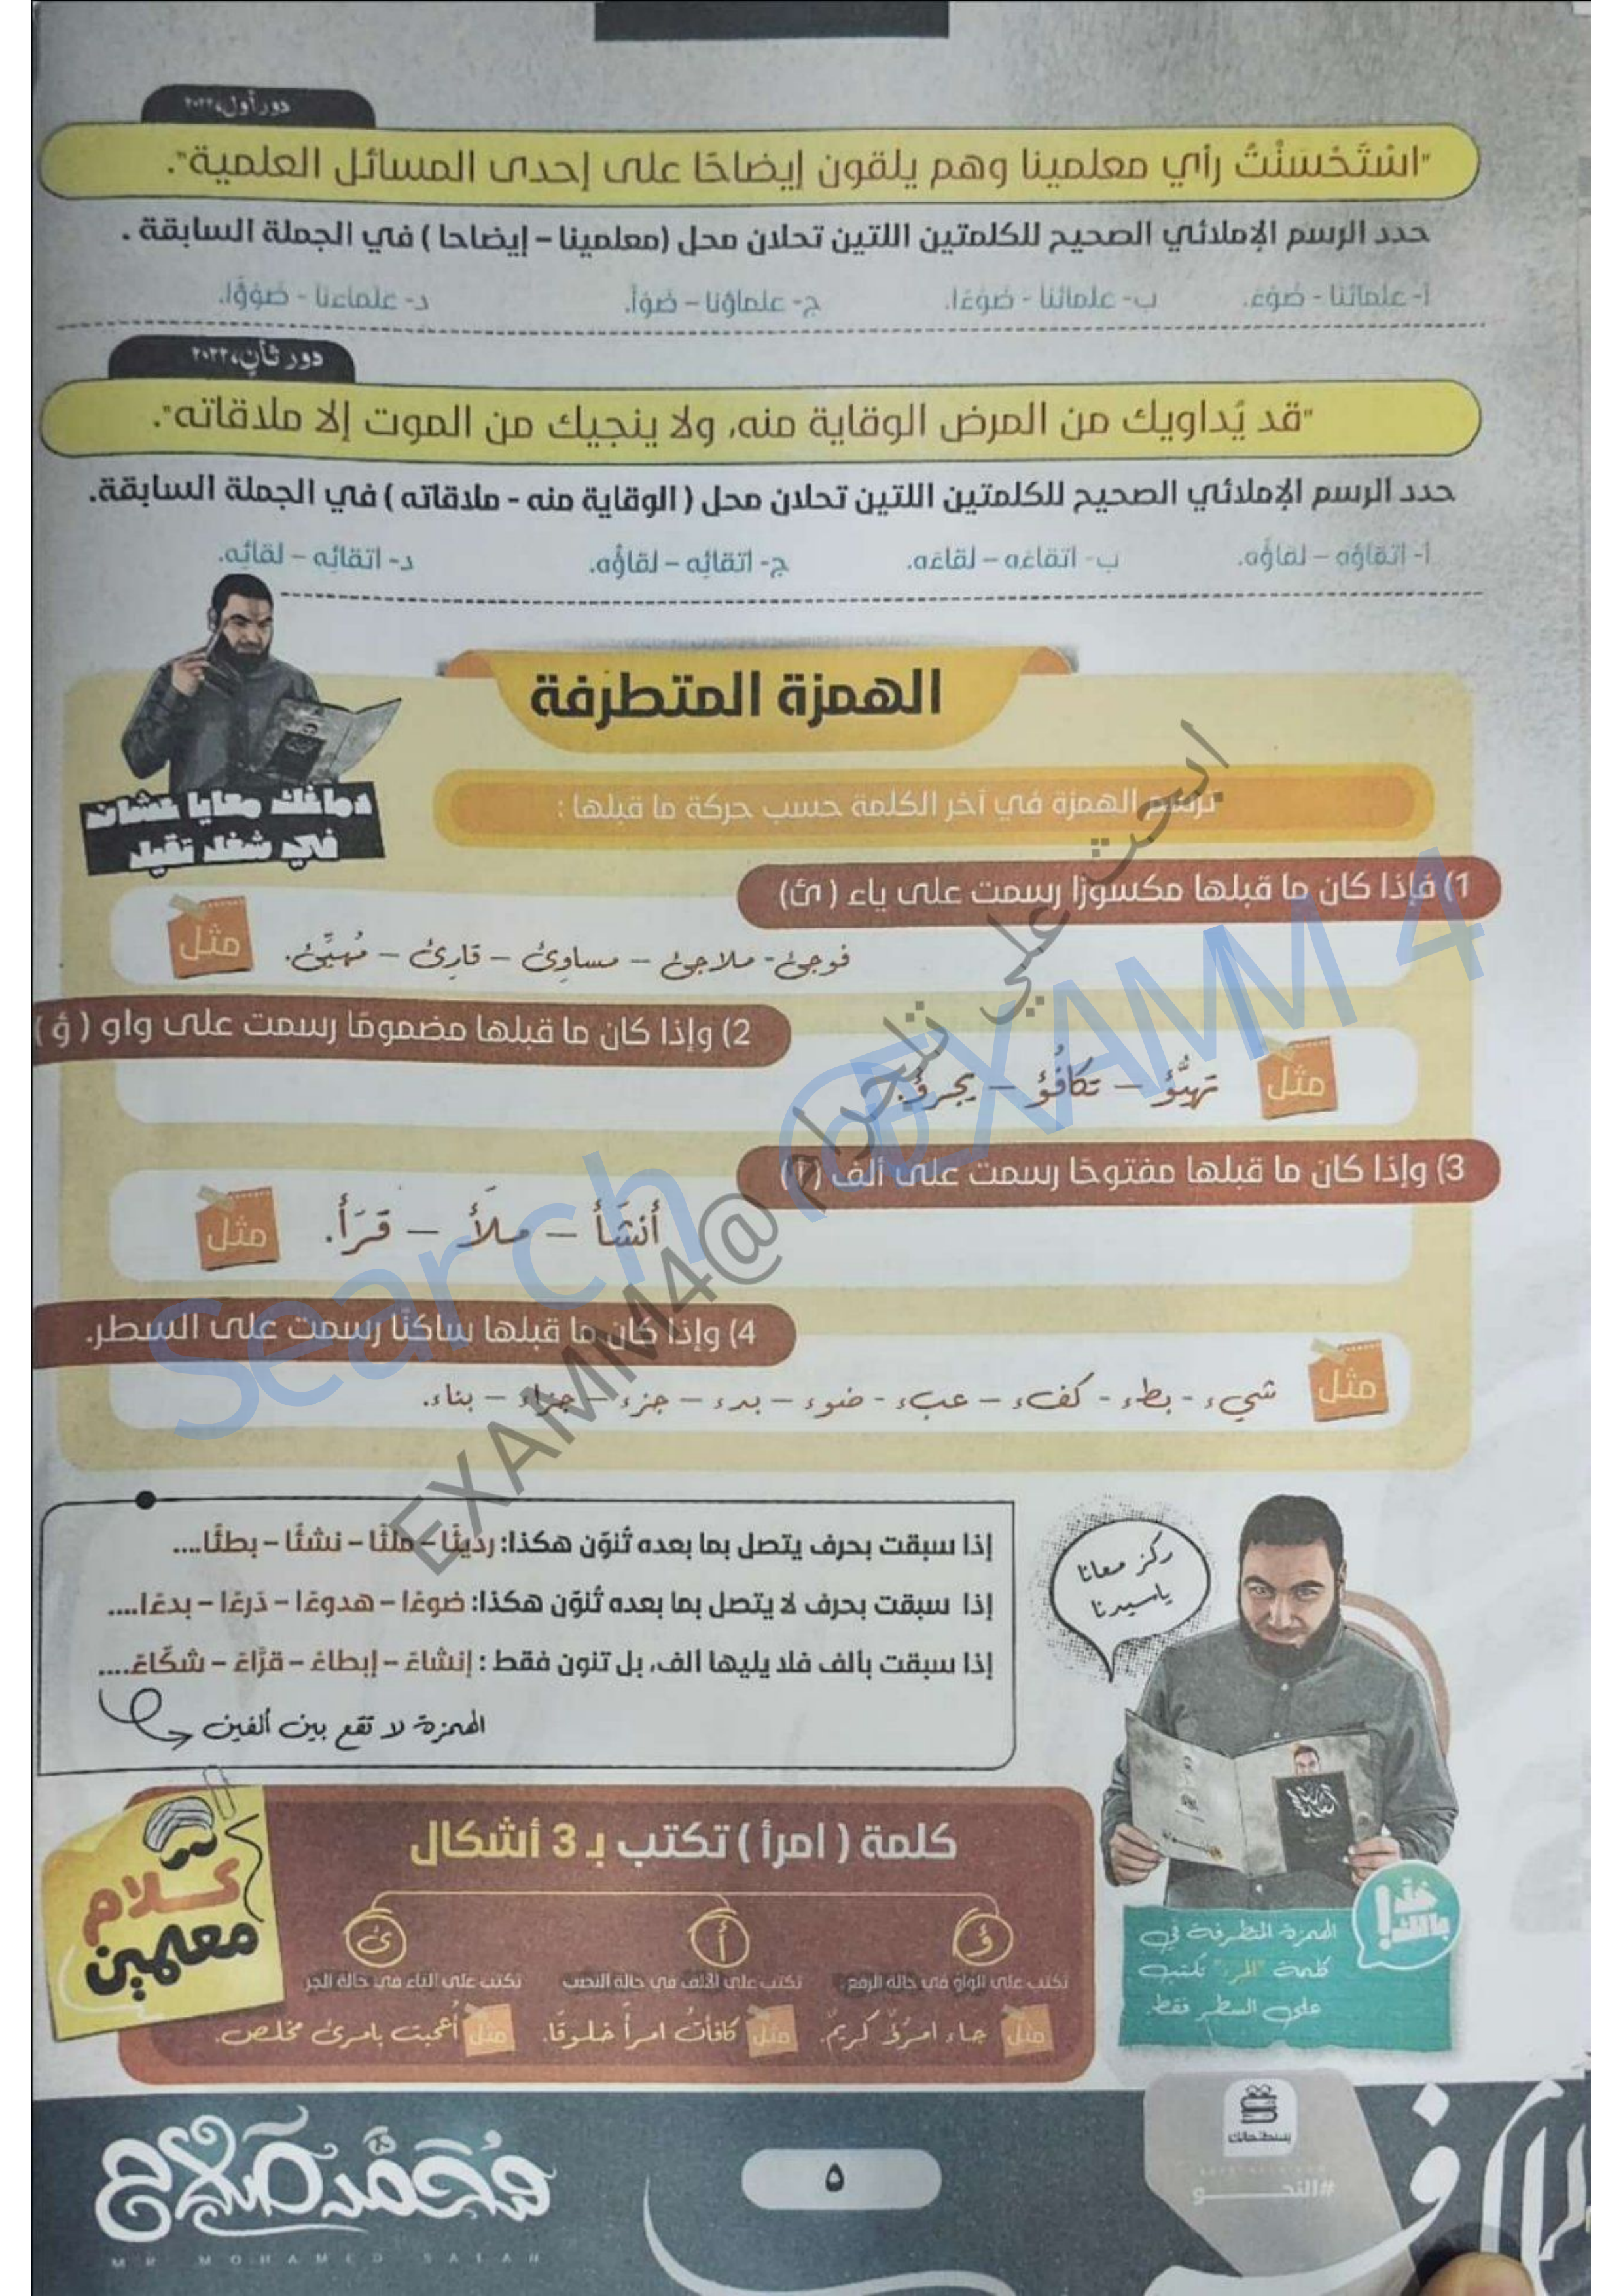 دور أول، ٢٠٢٢
"اسْتَحْسَنْتُ رأي معلمينا وهم يلقون إيضاحًا على إحدى المسائل العلمية".
حدد الرسم الإملائي الصحيح للكلمتين اللتين تحلان محل (معلمينا – إيضاحا) في الجملة السابقة .
أ- علمائنا - ضوْءً. ب- علمائنا - ضوْءًا. ج- علماؤنا – ضوْأ. د- علماءنا - ضوْؤًا.
دور ثانٍ، ٢٠٢٢
"قد يُداويك من المرض الوقاية منه، ولا ينجيك من الموت إلا ملاقاته".
حدد الرسم الإملائي الصحيح للكلمتين اللتين تحلان محل ( الوقاية منه - ملاقاته ) في الجملة السابقة.
أ- اتقاؤه – لقاؤه. ب- اتقاءَه – لقاءَه. ج- اتقائِه – لقاؤُه. د- اتقائِه – لقائِه.
الهمزة المتطرفة
دماغك معايا عشان
في شغل تقيل
ترسم الهمزة في آخر الكلمة حسب حركة ما قبلها :
1) فإذا كان ما قبلها مكسورًا رسمت على ياء ( ئ)
مثل فوجئ- ملاجئ – مساوئ – قارئ – مُهيِّئ.
2) وإذا كان ما قبلها مضمومًا رسمت على واو ( ؤ )
مثل تهيُّؤ – تكافُؤ – يجرؤ.
3) وإذا كان ما قبلها مفتوحًا رسمت على ألف (أ)
مثل أنشَأ – ملَأ – قرَأ.
4) وإذا كان ما قبلها ساكنًا رسمت على السطر.
مثل شيء - بطء - كفء – عبء - ضوء – بدء – جزء – جزاء – بناء.
إذا سبقت بحرف يتصل بما بعده تُنوّن هكذا: رديئًا – ملئًا – نشئًا – بطئًا....
إذا سبقت بحرف لا يتصل بما بعده تُنوّن هكذا: ضوءًا – هدوءًا – درءًا – بدءًا....
إذا سبقت بألف فلا يليها ألف، بل تنون فقط : إنشاءً – إبطاءً – قرَّاءً – شكَّاءً....
الهمزة لا تقع بين ألفين
ركز معانا
ياسيدنا
كلام
معلمين
كلمة ( امرأ ) تكتب بـ 3 أشكال
ؤ أ ئ
تكتب على الواو في حالة الرفع تكتب على الألف في حالة النصب تكتب على الياء في حالة الجر
مثل جاء امرُؤٌ كريمٌ. مثل كافأتُ امرأً خلوقًا. مثل أُعجبت بامرئ مخلص.
خد بالك!
الهمزة المتطرفة في
كلمة "المرء" تكتب
على السطر فقط
محمد صلاح
MR MOHAMED SALAH
٥
#النحو
Search @EXAMM4
ابحث علي تلجرام @EXAMM4